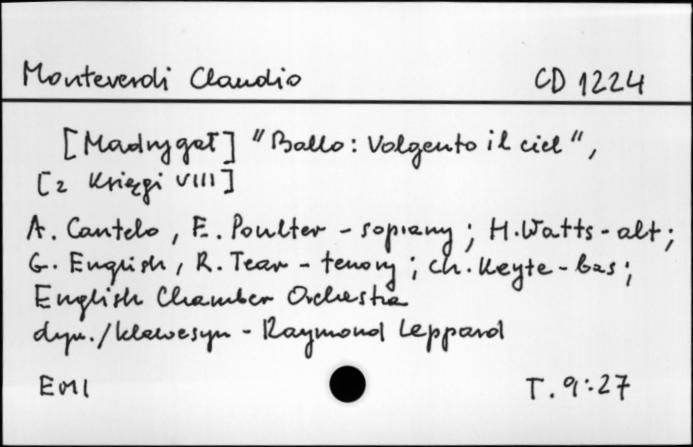 Monteverdi Claudio CD 1224
[Madrygał] "Ballo: Volgento il ciel",
[z Księgi VIII]
A. Cantelo, E. Poulter - soprany; H. Watts - alt;
G. English, R. Tear - tenory; Ch. Keyte - bas;
English Chamber Orchestra
dyr./klawesyn - Raymond Leppard
EMI T. 9:27